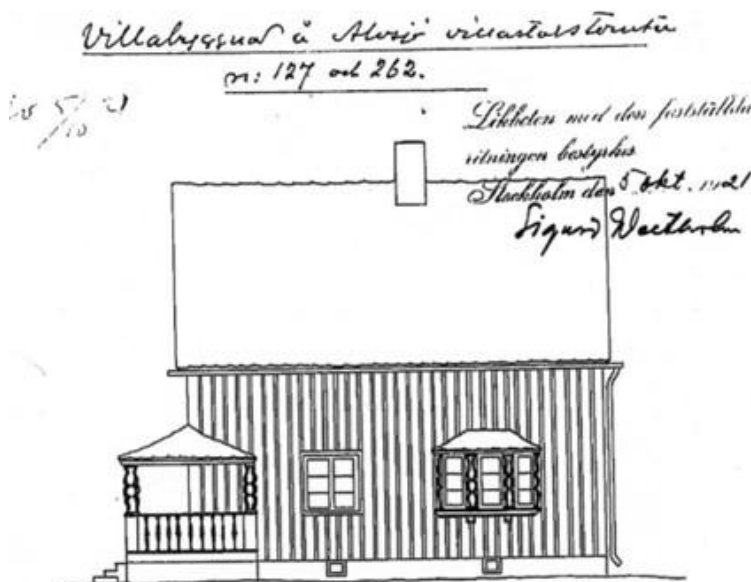 Villabyggnad å Älvsjö villastads tomter
n: 127 och 262.
5/10 21
Likheten med den fastställda
ritningen bestyrkes
Stockholm den 5 okt. 1921
Sigurd Westholm